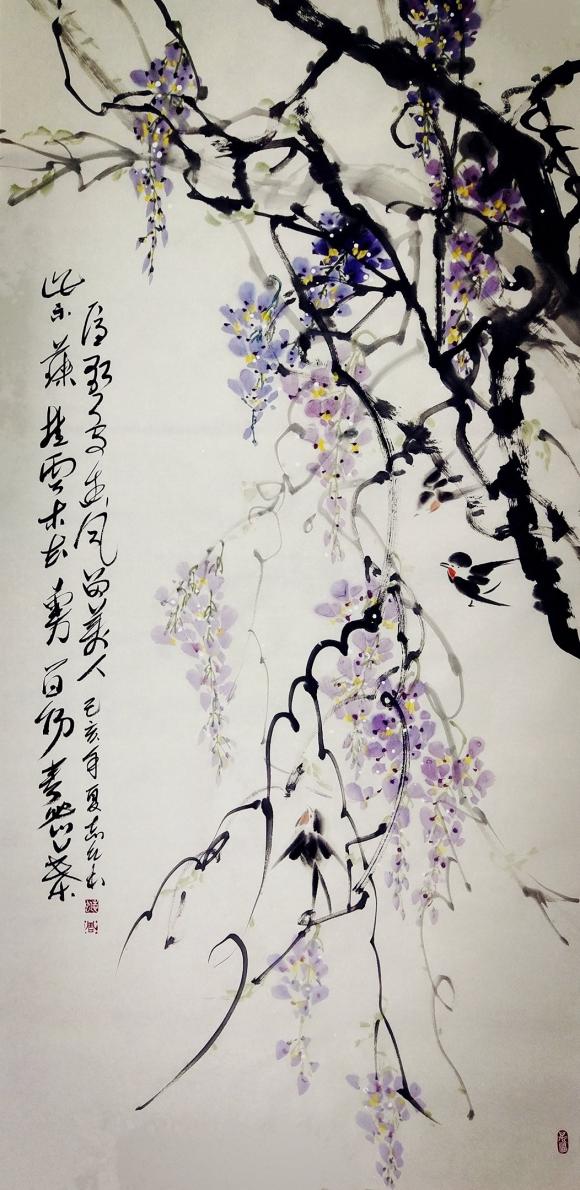 紫藤挂雲木花蔓宜阳春密叶
隐歌鸟香风留美人 己亥年夏志